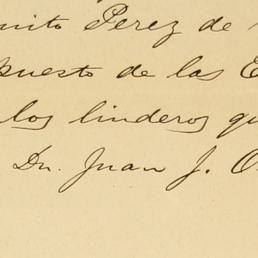 nito Perez de
puesto de las E
los linderos qu
Dn. Juan J. O